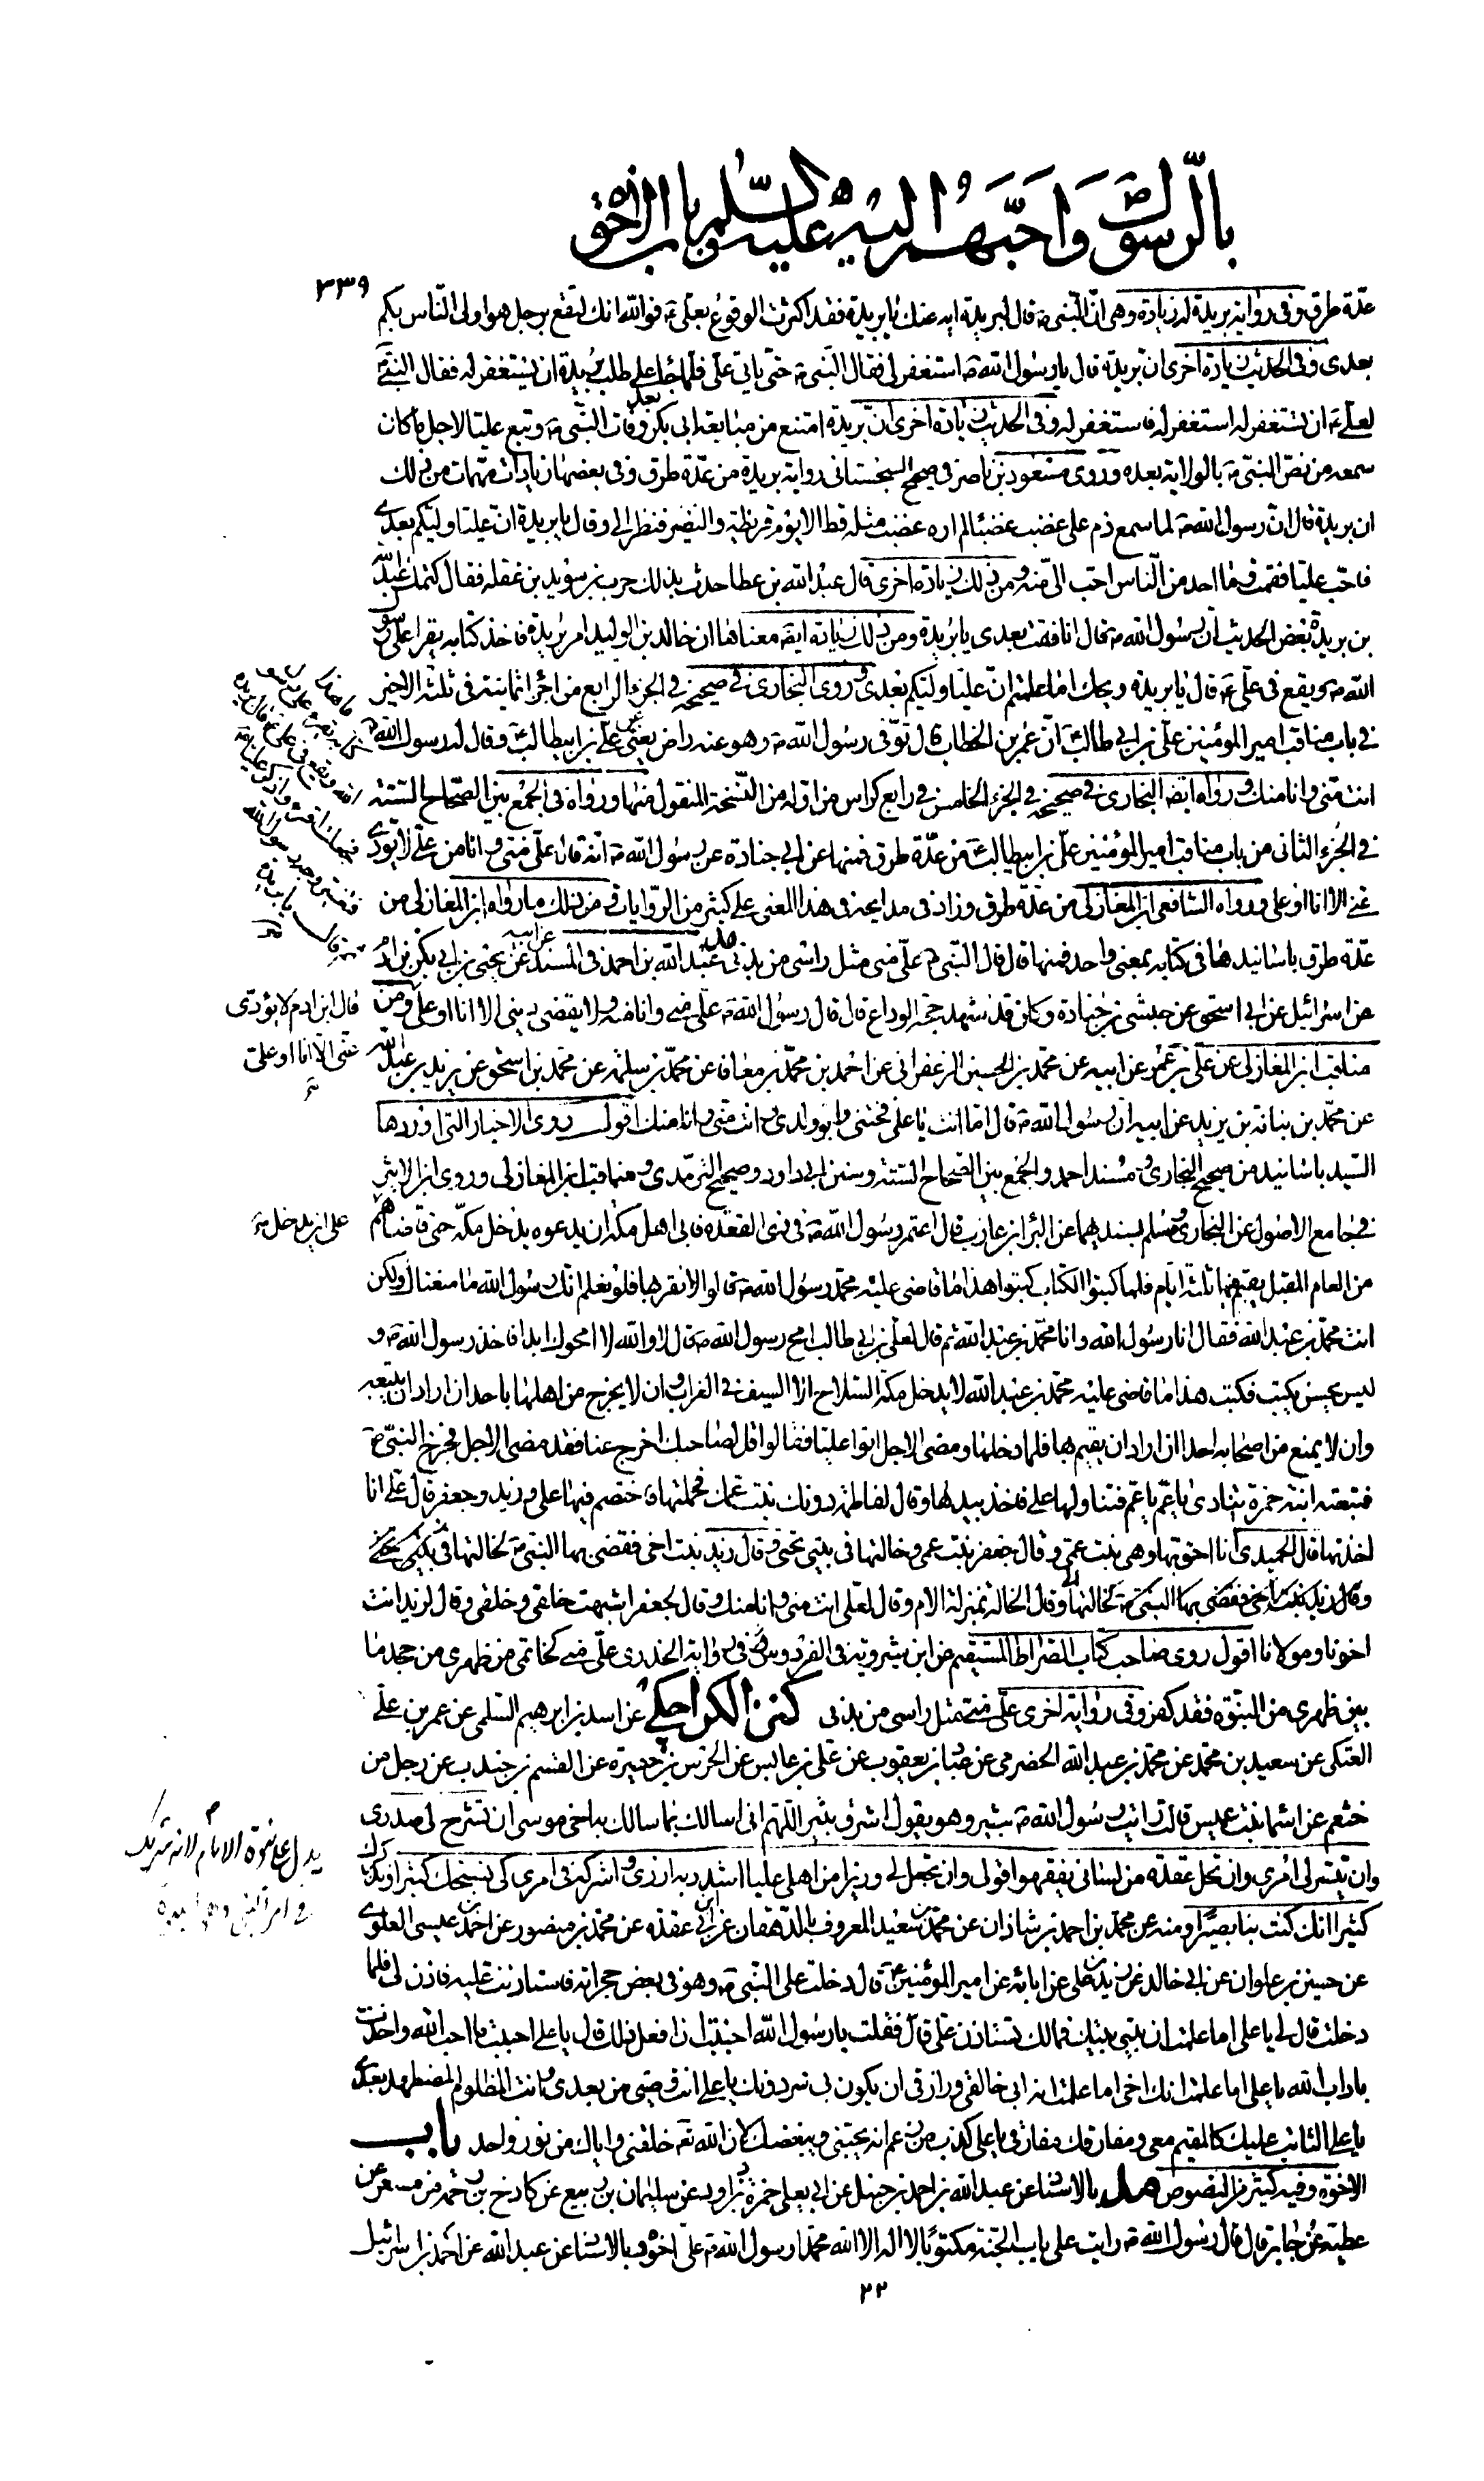 بالرسول واحبهم اليه عليه وسلم باب الاخوة
٣٣٩
عدّة طرق وفى رواية بريدة له زيادة وهى انّ النّبى ص قال لبريدة ايه عنك يا بريدة فقد اكثرت الوقوع بعلى ع فو الله انك لتقع برجل هو اولى النّاس بكم
بعدى وفى الحديث زيادة اخرى ان بريدة قال يا رسول الله ص استغفر لى فقال النّبى ص حتى ياتى على فلما جاء على طلب بريدة ان يستغفر له فقال النبى ص
لعلى ع ان تستغفر له استغفر له فاستغفر له وفى الحديث زيادة اخرى انّ بريدة امتنع من مبايعة ابى بكر بعد وفات النّبى ص وتبع عليا لاجل ما كان
سمعه من نصّ النبىّ ص بالولاية بعده وروى مسعود بن ناصر فى صحيح السجستانى رواية بريدة من عدّة طرق وفى بعضها زيادات مهمات من ذلك
ان بريدة قال انّ رسول الله ص لما سمع ذم على غضب غضبا لم اره غضب مثله قط الا يوم قريظة والنضير فنظر الى وقال يا بريدة انّ عليا وليّكم بعدى
فاحب عليا فقمت وما احد من النّاس احب الىّ منه ومن ذلك زيادة اخرى قال عبد الله بن عطا حدثت بذلك حرب بن سويد بن غفله فقال كتمك عبد الله
بن بريدة بعض الحديث ان رسول الله ص قال انافقت بعدى يا بريدة ومن ذلك زيادة ايضا معناها ان خالد بن الوليد امر بريدة فاخذ كتابه يقرا على رسول
الله ص ويقع فى على ع قال يا بريدة ويحك اما علمتم انّ عليا وليّكم بعدى وروى البخارى فى صحيحه فى الجزء الرابع من اجزاء ثمانية فى ثلثه الاخير
فى باب مناقب امير المؤمنين على بن ابى طالب ع انّ عمر بن الخطاب قال توفّى رسول الله ص وهو عنه راض يعنى عن على بن ابيطالب ع وقال له رسول الله ص
انت منّى وانا منك ورواه ايضا البخارى فى صحيحه فى الجزء الخامس فى رابع كراس من اوله من النّسخة المنقول منها ورواه فى الجمع بين الصّحاح الستة
فى الجزء الثانى من باب مناقب امير المؤمنين على بن ابيطالب ع من عدّة طرق فمنها عن ابى جنادة عن رسول الله ص انه قال علّى منى وانا من على لا يؤدى
عنى الا انا او على ورواه الشافعى ابن المغازلى من عدّة طرق وزاد فى مدايحه فى هذا المعنى على كثير من الرّوايات فمن ذلك ما رواه ابن المغازلى من
عدّة طرق باسانيدها فى كتابه بمعنى واحد فمنها قال قال النّبى ص علّى منى مثل راسى من بدنى مد عبد الله بن احمد فى المسند عن ابيه عن يحيى بن ابى بكير بن ادم
عن اسرائيل عن ابى اسحق عن حبشى بن جنادة وكان قد شهد حجة الوداع قال قال رسول الله ص علّى منى وانا منه ولا يقضى دينى الا انا او على ومن
مناقب ابن المغازلى عن على بن عمر عن ابيه عن محمد بن الحسين الزعفرانى عن احمد بن محمّد بن معاف عن محمّد بن سلمة عن محمد بن اسحق عن يزيد بن عبد الله
عن محمّد بن بنانة بن يزيد عن ابيه ان رسول الله ص قال امّا انت يا على فختنى وابو ولدى وانت منى وانا منك اقول روى الاخبار التى اوردها
السّيد باسانيد من صحيح البخارى ومسند احمد والجمع بين الصّحاح الستة وسنن ابى داود وصحيح الترمّدى ومناقب ابن المغازلى وروى ابن الاثير
فى جامع الاصول عن البخارى ومسلم بسنديهما عن البراء بن عازب قال اعتمر رسول الله ص فى ذى القعده فابى اهل مكة ان يدعوه يدخل مكّه حتى قاضاهم
من العام المقبل يقيم فيها ثلثة ايّام فلما كتبوا الكتاب كتبوا هذا ما قاضى عليه محمّد رسول الله ص قالوا لا نقر بها فلو نعلم انك رسول الله ما منعناك ولكن
انت محمّد بن عبد الله فقال انا رسول الله وانا محمّد بن عبد الله ثم قال لعلى بن ابى طالب امح رسول الله ص قال لا والله لا امحوك ابدا فاخذ رسول الله ص و
ليس يحسن يكتب فكتب هذا ما قاضى عليه محمّد بن عبد الله لا يدخل مكّة السّلاح الا السيف فى القراب وان لا يخرج من اهلها باحد ان اراد ان يتبعه
وان لا يمنع من اصحابه احدا ان اراد ان يقيم بها فلما دخلها ومضى الاجل اتوا عليا فقالوا قل لصاحبك اخرج عنا فقد مضى الاجل فخرج النبىّ ص
فتبعته ابنة حمزة تنادى يا عمّ يا عم فتناولها على فاخذ بيدها وقال لفاطمة دونك بنت عمك فحملتها فاختصم فيها على وزيد وجعفر قال على انا
اخذتها قال الحميدى انا احق بها وهى بنت عمّى وقال جعفر بنت عمى وخالتها فى بيتى تحتى وقال زيد بنت اخى فقضى بها النبىّ ص لخالتها
وقال زيد بنت اخى فقضى بها النبىّ ص لخالتها وقال الخالة بمنزلة الام وقال لعلّى انت منى وانا منك وقال لجعفر اشبهت خلقى وخلقى وقال لزيد انت
اخونا ومولانا اقول روى صاحب كتاب الصّراط المستقيم من ابن شيرويه فى الفردوس وفى رواية الخدرى علّى منى كخاتمى من ظهرى من جحد ما
بين ظهرى من النبوّه فقد كفر وفى رواية اخرى علّى منى مثل راسى من بدنى كنز الكراجكى عن اسد بن ابرهيم السّلمى عن عمر بن على
العتكى عن سعيد بن محمّد عن محمّد بن عبد الله الحضرمى عن عباد بن يعقوب عن على بن عابس عن الحرث بن حصيرة عن القسم بن جندب عن رجل من
خثعم عن اسماء بنت عميس قالت رايت رسول الله ص بثبير وهو يقول اشرق ثبير اللّهم انى اسالك بما سالك به اخى موسى ان تشرح لى صدرى
وان تيسّر لى امرى وان تحل عقدة من لسانى يفقهوا قولى وان تجعل لى وزيرا من اهلى عليا اشدد به ازرى واشركه فى امرى كى نسبحك كثيرا ونذكرك
كثيرا انك كنت بنا بصيرًا ومنه عن محمّد بن احمد بن شاذان عن محمّد بن سعيد المعروف بالدّهقان عن ابن عقده عن محمّد بن منصور عن احمد بن عيسى العلوى
عن حسين بن علوان عن ابى خالد عن زيد بن على عن ابائه عن امير المؤمنين ع قال دخلت على النّبى ص وهو فى بعض حجراته فاستاذنت عليه فاذن لى فلما
دخلت قال لى يا على اما علمت ان بيتى بيتك فمالك تستاذن على قال فقلت يا رسول الله احببت ان افعل ذلك قال يا على احببت ما احب الله واخذت
باداب الله يا على اما علمت انك اخى اما علمت انه ابى خالقى ورازقى ان يكون لى سر دونك يا على انت وصيى من بعدى وانت المظلوم المضطهد بعدى
يا على الثابت عليك كالمقيم معى ومفارقك مفارقى يا على كذب من زعم انه يحبنى ويبغضك لان الله تعالى خلقنى واياك من نور واحد باب
الاخوة وفيه كثير من النصوص مد بالاسناد عن عبد الله بن احمد بن حنبل عن ابى يعلى حمزة بن داود عن سليمان بن ربيع عن كادح بن رحمة عن مسعر عن
عطية عن جابر قال قال رسول الله ص رايت على باب الجنّة مكتوبًا لا اله الا الله محمّد رسول الله ص علّى اخوه وبالاسناد عن عبد الله عن احمد بن اسرائيل
قال ابن ادم لا يؤدّى
عنّى الّا انا او على
على ان يدخل مكة
يدل على اخوة الامام لانه شريك
فى امر النبى
٢٢